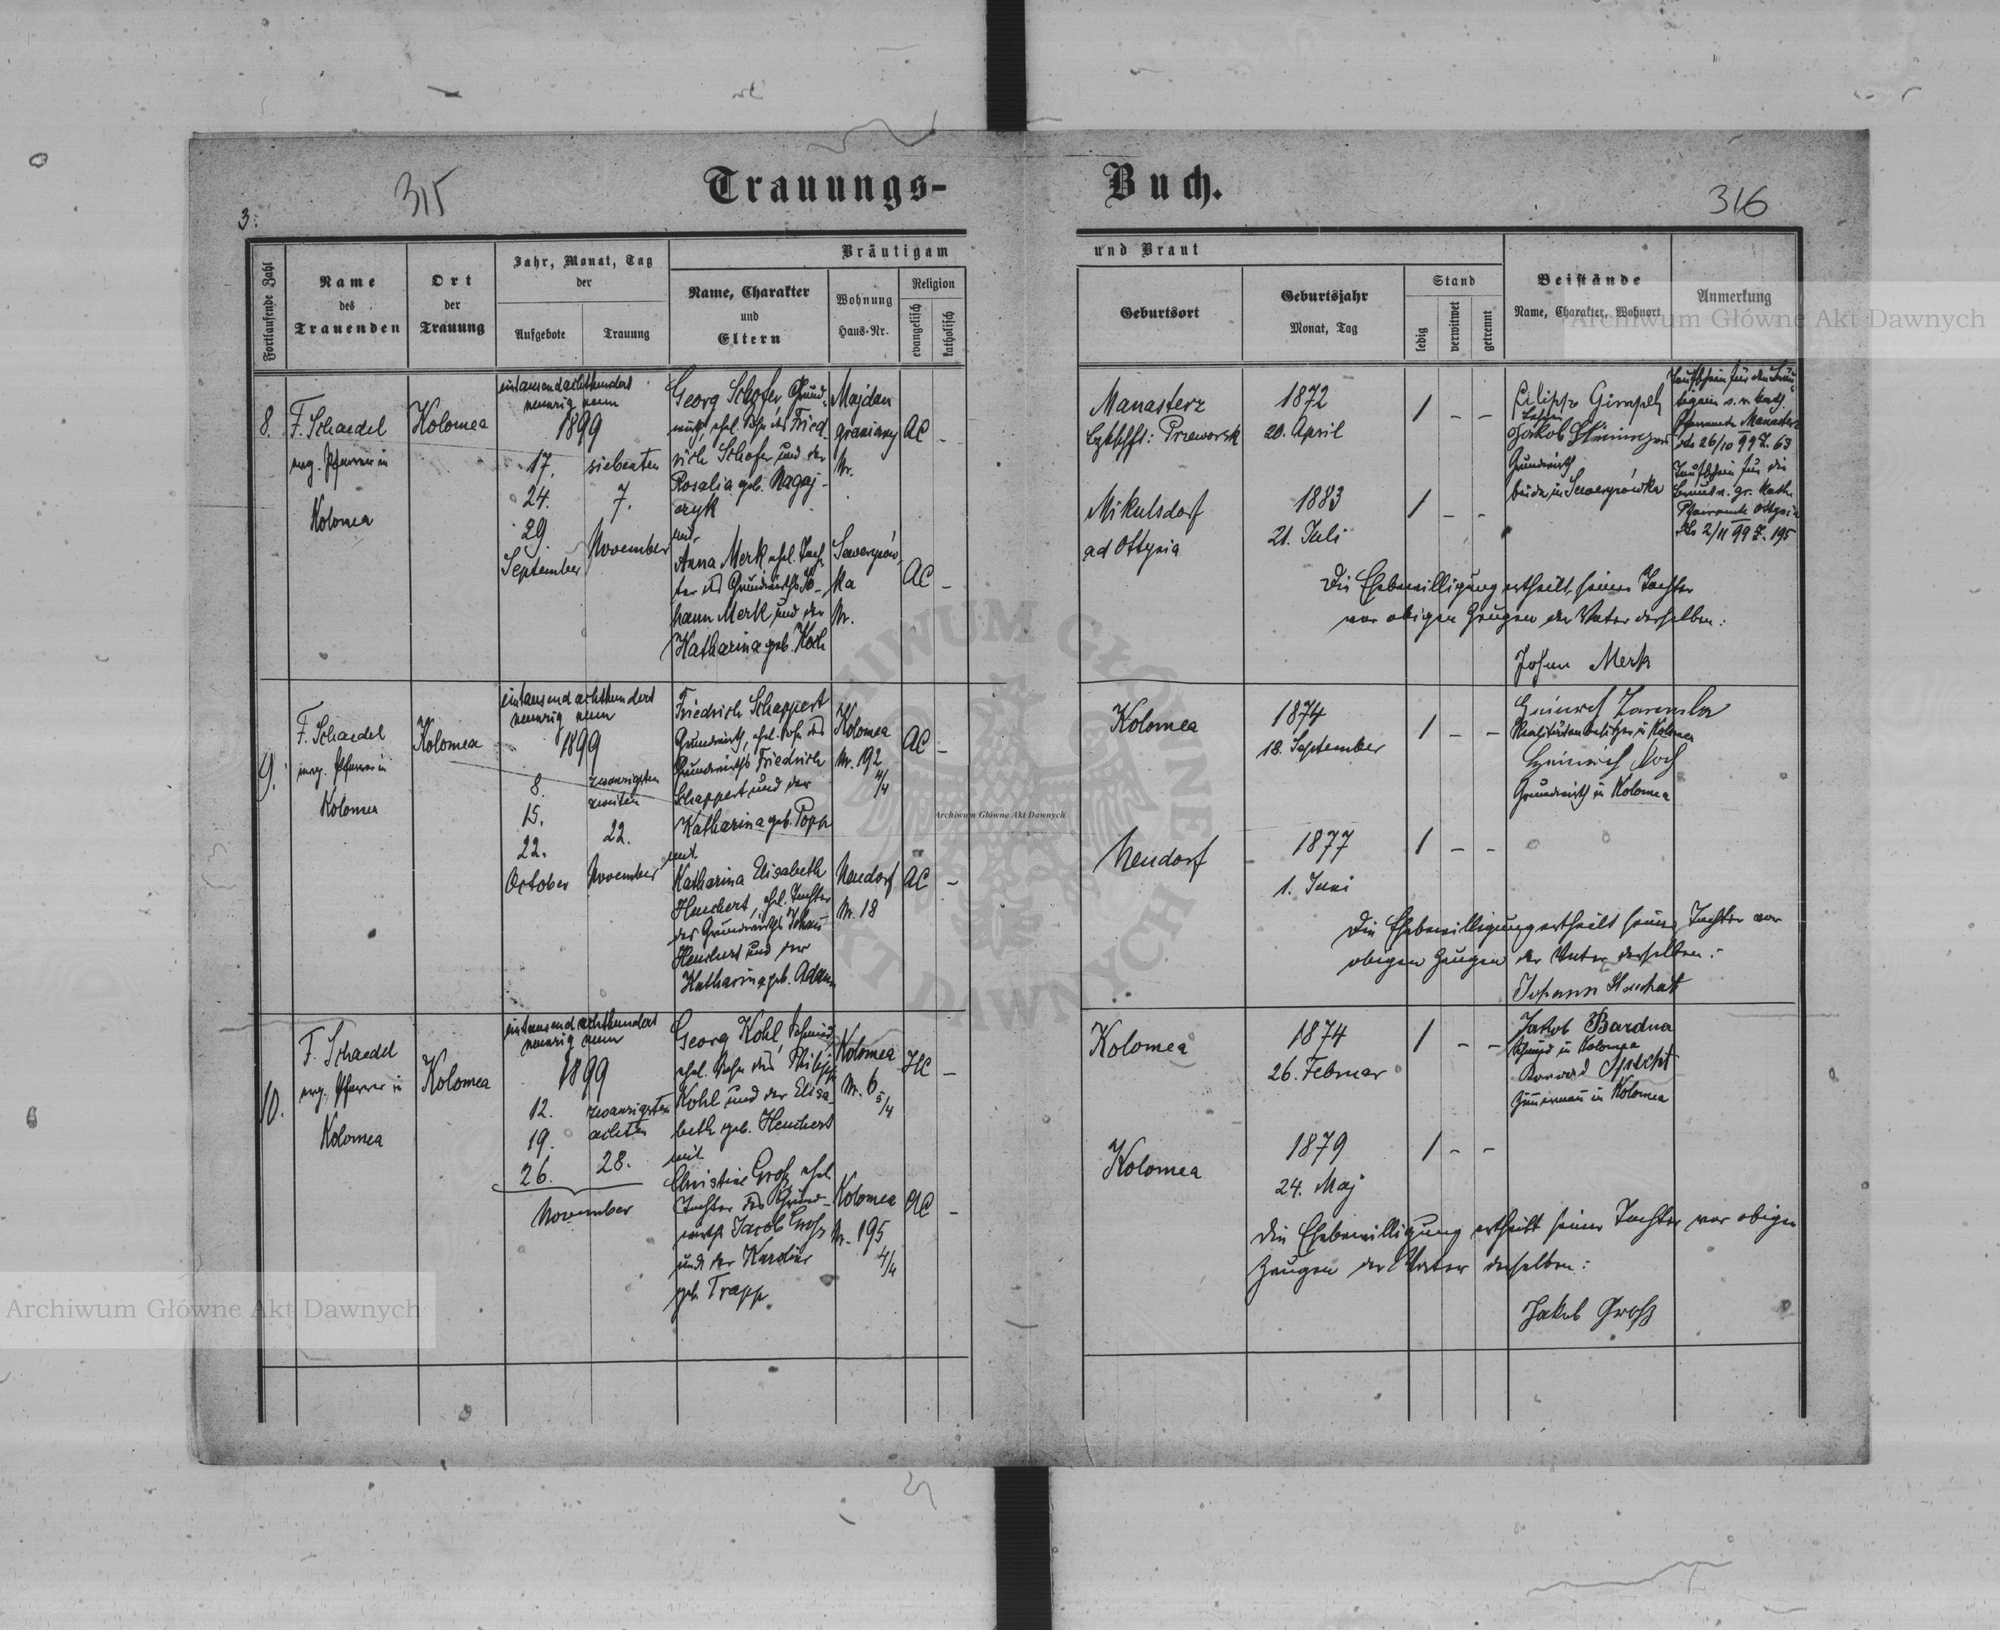 315
Trauungs-
Buch.
316
3.
Fortlaufende Zahl
Name
des
Trauenden
Ort
der
Trauung
Jahr, Monat, Tag
der
Aufgebote
Trauung
Bräutigam
Name, Charakter
und
Eltern
Wohnung
Haus-Nr.
Religion
evangelisch
katholisch
und Braut
Geburtsort
Geburtsjahr
Monat, Tag
Stand
ledig
verwitwet
getrennt
Beistände
Name, Charakter, Wohnort
Anmerkung
8.
F. Schaedel
evg. Pfarrer in
Kolomea
Kolomea
eintausendachthundert
neunzig neun
1899
17.
24.
29.
September
siebenten
7.
November
Georg Schofer, Grund-
wirth, ehel. Sohn des Fried-
rich Schofer und der
Rosalia geb. Nagaj-
czyk
mit
Anna Merk ehel. Toch-
ter des Grundwirths Jo-
hann Merk und der
Katharina geb. Koch
Majdan
graniczny
Nr.
Sewerynów-
ka
Nr.
AC -
AC -
Manasterz
Bzkshft: Przeworsk
1872
20. April
1 - -
Mikulsdorf
ad Ottynia
1883
21. Juli
1 - -
Filipp Gimpel
Jakob
Grundwirth
beide in Sewerynówka
Taufschein für den Bräu-
tigam
Pfarramte Manaster
dto 26/10 99 Z. 63
Taufschein für die
Braut v. gr. kath.
Pfarramte Ottynia
dto 2/11 99 Z. 195
Die Ehebewilligung ertheilt seiner Tochter
vor obigen Zeugen der Vater derselben:
Johan Merk
9.
F. Schaedel
evg. Pfarrer in
Kolomea
Kolomea
eintausendachthundert
neunzig neun
1899
8.
15.
22.
October
zwanzigsten
zweiten
22.
November
Friedrich Schappert
Grundwirth, ehel. Sohn des
Grundwirths Friedrich
Schappert und der
Katharina geb. Popp
mit
Katharina Elisabeth
Heuchert, ehel. Tochter
des Grundwirths Johann
Heuchert und der
Katharina geb. Adam
Kolomea
Nr. 192
4/4
Neudorf
Nr. 18
AC -
AC -
Kolomea
1874
18. September
1 - -
Neudorf
1877
1. Juni
1 - -
Heinrich Zaremba
Realitätenbesitzer in Kolomea
Heinrich Koch
Grundwirth in Kolomea
Die Ehebewilligung ertheilt seiner Tochter vor
obigen Zeugen der Vater derselben:
Johann Heuchert
10.
F. Schaedel
evg. Pfarrer in
Kolomea
Kolomea
eintausendachthundert
neunzig neun
1899
12.
19.
26.
zwanzigsten
achten
28.
November
Georg Kohl, Schmied,
ehel. Sohn des Philipp
Kohl und der Elisa-
beth geb. Heuchert
mit
Christine Groß, ehel.
Tochter des Grund-
wirths Jacob Groß
und der Karoline
geb. Trapp
Kolomea
Nr. 6
5/4
Kolomea
Nr. 195
4/4
HC -
AC -
Kolomea
1874
26. Februar
1 - -
Kolomea
1879
24. Maj
1 - -
Jakob Bardua
Schmied in Kolomea
Konrad Specht
Zimmermann in Kolomea
Die Ehebewilligung ertheilt seiner Tochter vor obigen
Zeugen der Vater derselben:
Jakob Groß
Archiwum Główne Akt Dawnych
Archiwum Główne Akt Dawnych
Archiwum Główne Akt Dawnych
ARCHIWUM GŁÓWNE AKT DAWNYCH